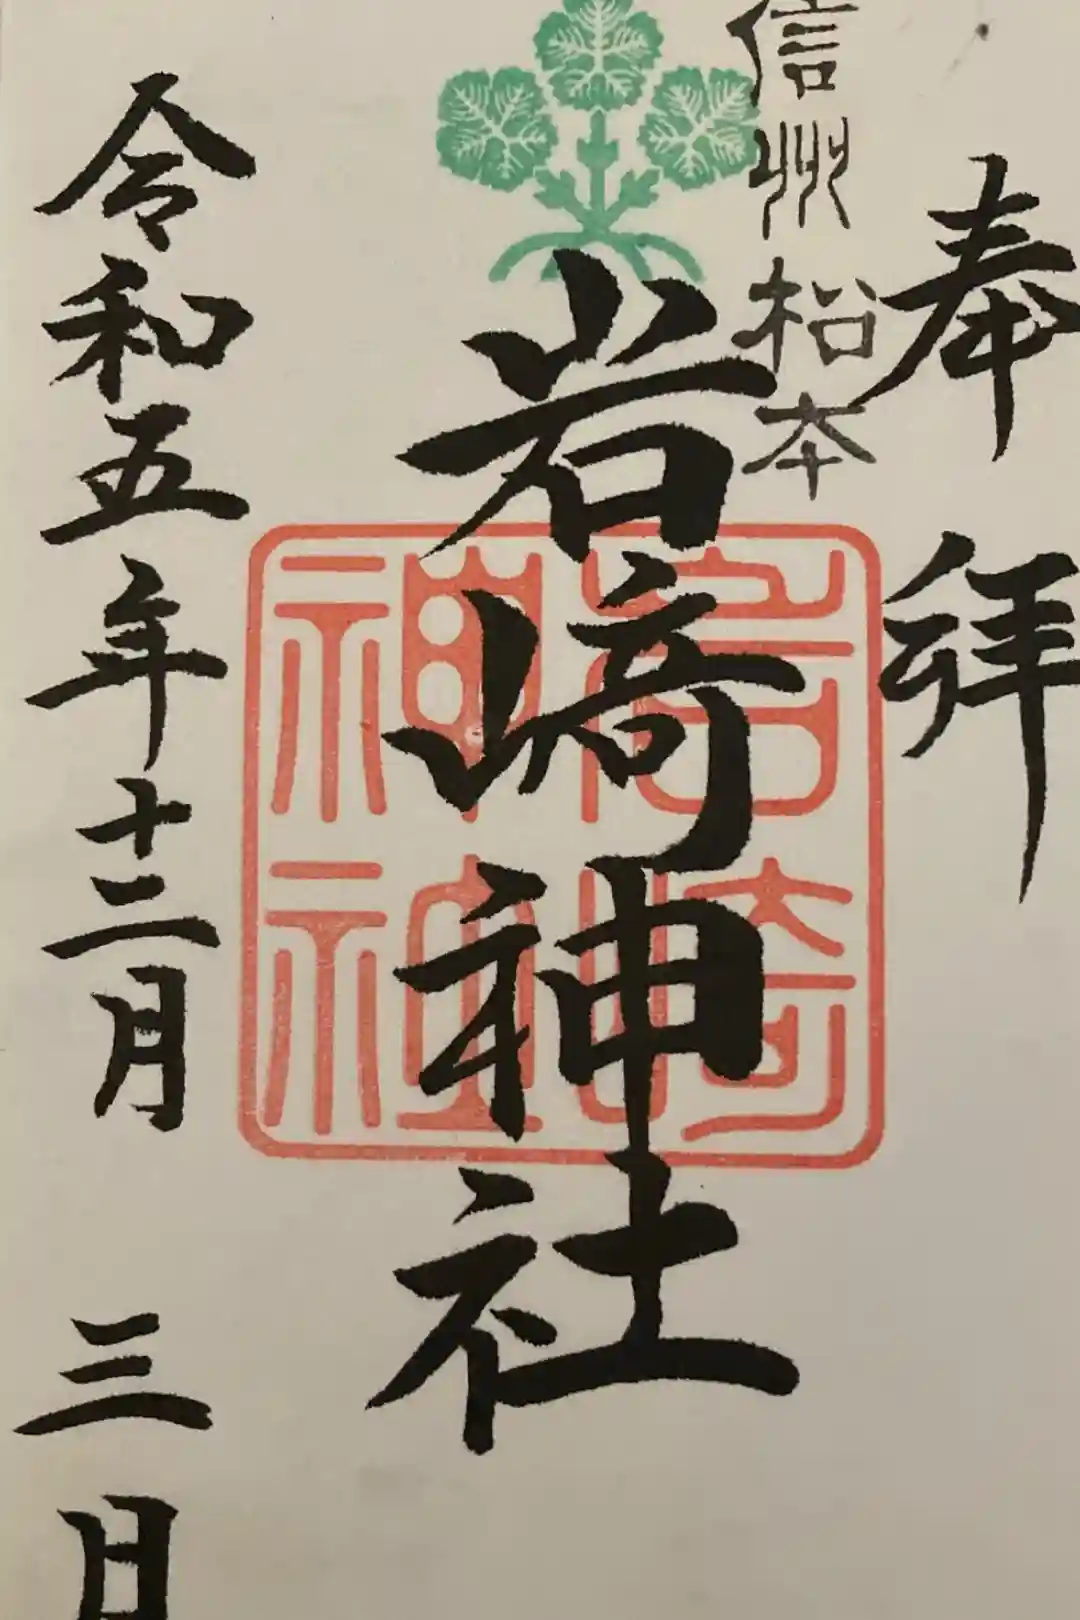 奉拝
信州松本
岩崎神社
岩崎
神社
令和五年十二月 三日